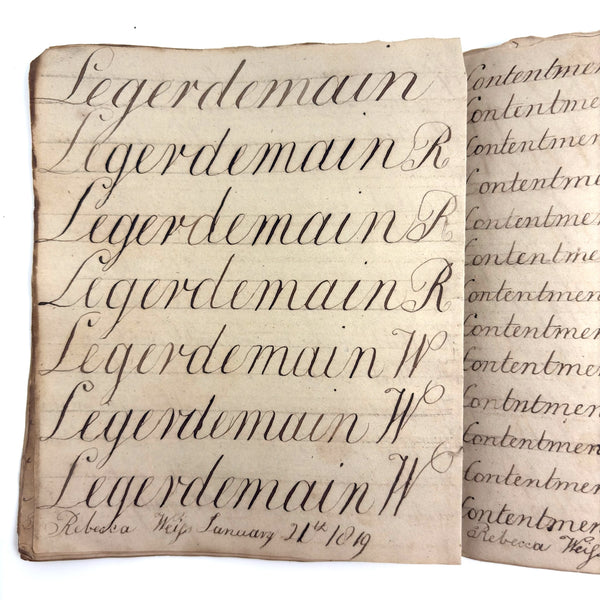 Legerdemain
Legerdemain R
Legerdemain R
Legerdemain R
Legerdemain W
Legerdemain W
Legerdemain W
Rebecca Weiſs January 21st 1819
Contentmen
Contentme
Contentmen
Contentme
Contentme
Contentmen
Contentmen
Contentmen
Contentmen
Contntmen
Contentmen
Contentmen
Contentmen
Rebecca Weiſs